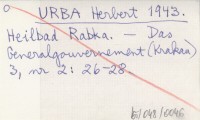 URBA Herbert 1943.
Heilbad Rabka. — Das
Generalgouvernement (Krakau)
3, nr 2: 26-28.